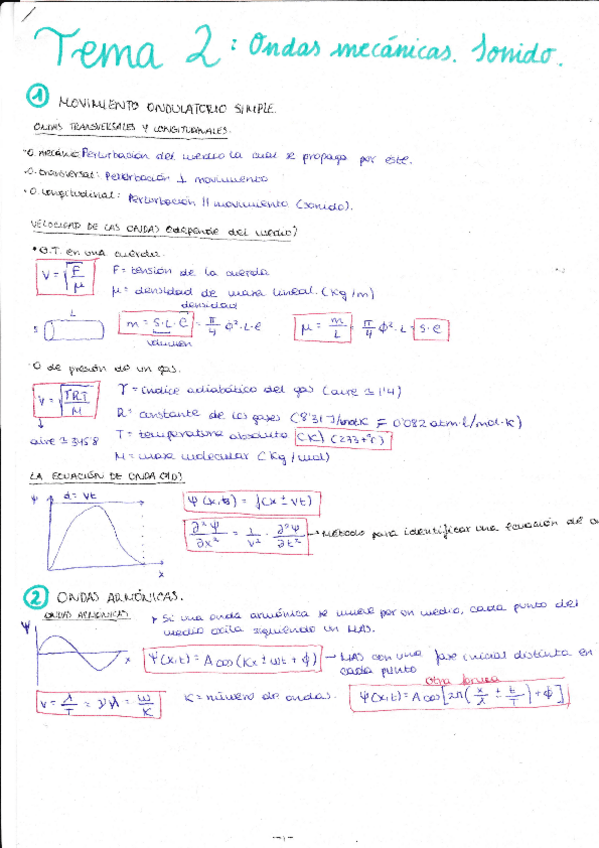 Tema 2: Ondas mecánicas. Sonido.
1 MOVIMIENTO ONDULATORIO SIMPLE.
ONDAS TRANSVERSALES Y LONGITUDINALES.
·O. mecánic Perturbación del medio la cual se propaga por éste.
·O. transversal: Perturbación ⊥ movimiento
·O. Longitudinal: Perturbación || movimiento (sonido).
VELOCIDAD DE LAS ONDAS (depende del medio)
* O.T. en una cuerda.
V = √(F/μ) F = tensión de la cuerda
μ = densidad de masa lineal. (Kg/m)
densidad
S L m = S·L·ρ = π/4 ϕ²·L·ρ μ = m/L = π/4 ϕ²·L = S·ρ
volumen
·O de presión de un gas.
V = √(γRT/M) γ = índice adiabático del gas (aire ≃ 1'4)
R = constante de los gases (8'31 J/molK = 0'082 atm·l/mol·K)
aire ≃ 345'8 T = temperatura absoluta (K) (273+ºC)
M = masa molecular (Kg/mol)
LA ECUACIÓN DE ONDA (1D)
ψ d = vt ψ(x,t) = f(x ± vt)
∂²ψ/∂x² = 1/v² · ∂²ψ/∂t² → Método para identificar una ecuación de o
x
2 ONDAS ARMÓNICAS.
ONDAS ARMÓNICAS * Si una onda armónica se mueve por un medio, cada punto del
ψ medio oscila siguiendo un MAS.
x ψ(x,t) = A cos(Kx ± ωt + ϕ) → MAS con una fase inicial distinta en
cada punto
Otra forma
v = λ/T = νλ = ω/K K = número de ondas. ψ(x,t) = A cos[2π(x/λ ± t/T) + ϕ]
-1-